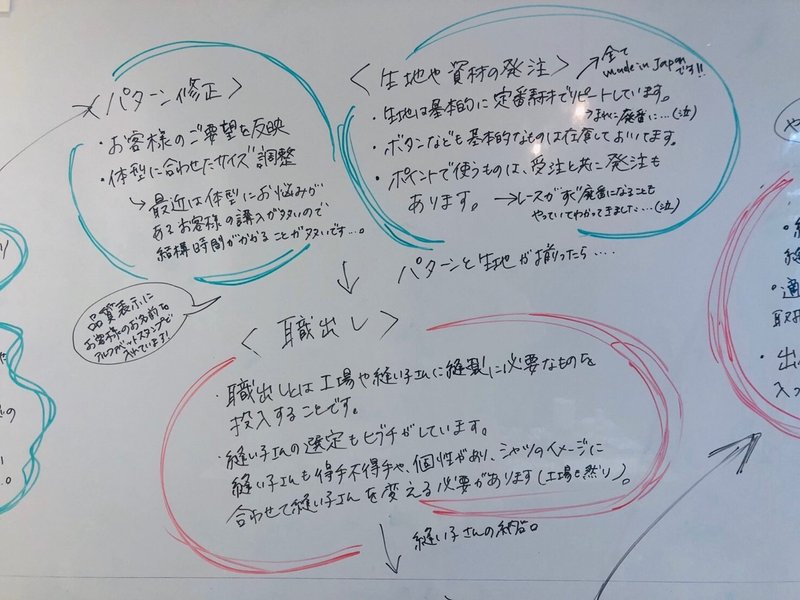 <パターン修正>
・お客様のご要望を反映
・体型に合わせたサイズ調整
↳最近は体型にお悩みが
あるお客様の購入が多いので
結構時間がかかることが多いです…。
<生地や資材の発注>
→全て
made in Japan
です!!
・生地は基本的に定番素材でリピートしています。
→まれに廃番に…(泣)
・ボタンなども基本的なものは在庫しております。
・ポイントで使うものは、受注と共に発注も
あります。
→レースがすぐ廃番になることも
やっていてわかってきました…(泣)
パターンと生地が揃ったら….
品質表示に
お客様のお名前を
アルファベットスタンプで
入れています!
<職出し>
・職出しとは工場や縫い子さんに縫製に必要なものを
投入することです。
・縫い子さんの選定もヒグチがしています。
縫い子さんも得手不得手や、個性があり、シャツのイメージに
合わせて縫い子さんを変える必要があります(工場も然り)。
縫い子さんの納品。
や
・縫
・適
取
・出
入っ
た
の